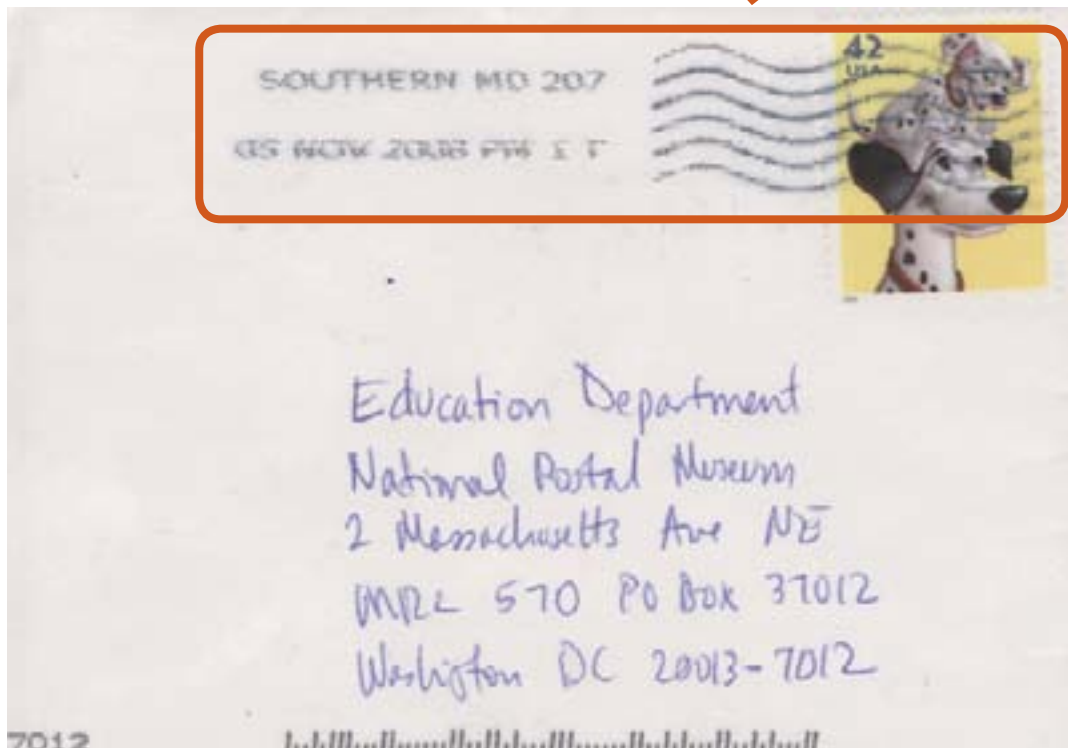 SOUTHERN MD 207
05 NOV 2008 PM 1 T
42
USA
Education Department
National Postal Museum
2 Massachusetts Ave NE
MRL 570 PO Box 37012
Washigton DC 20013-7012
7012